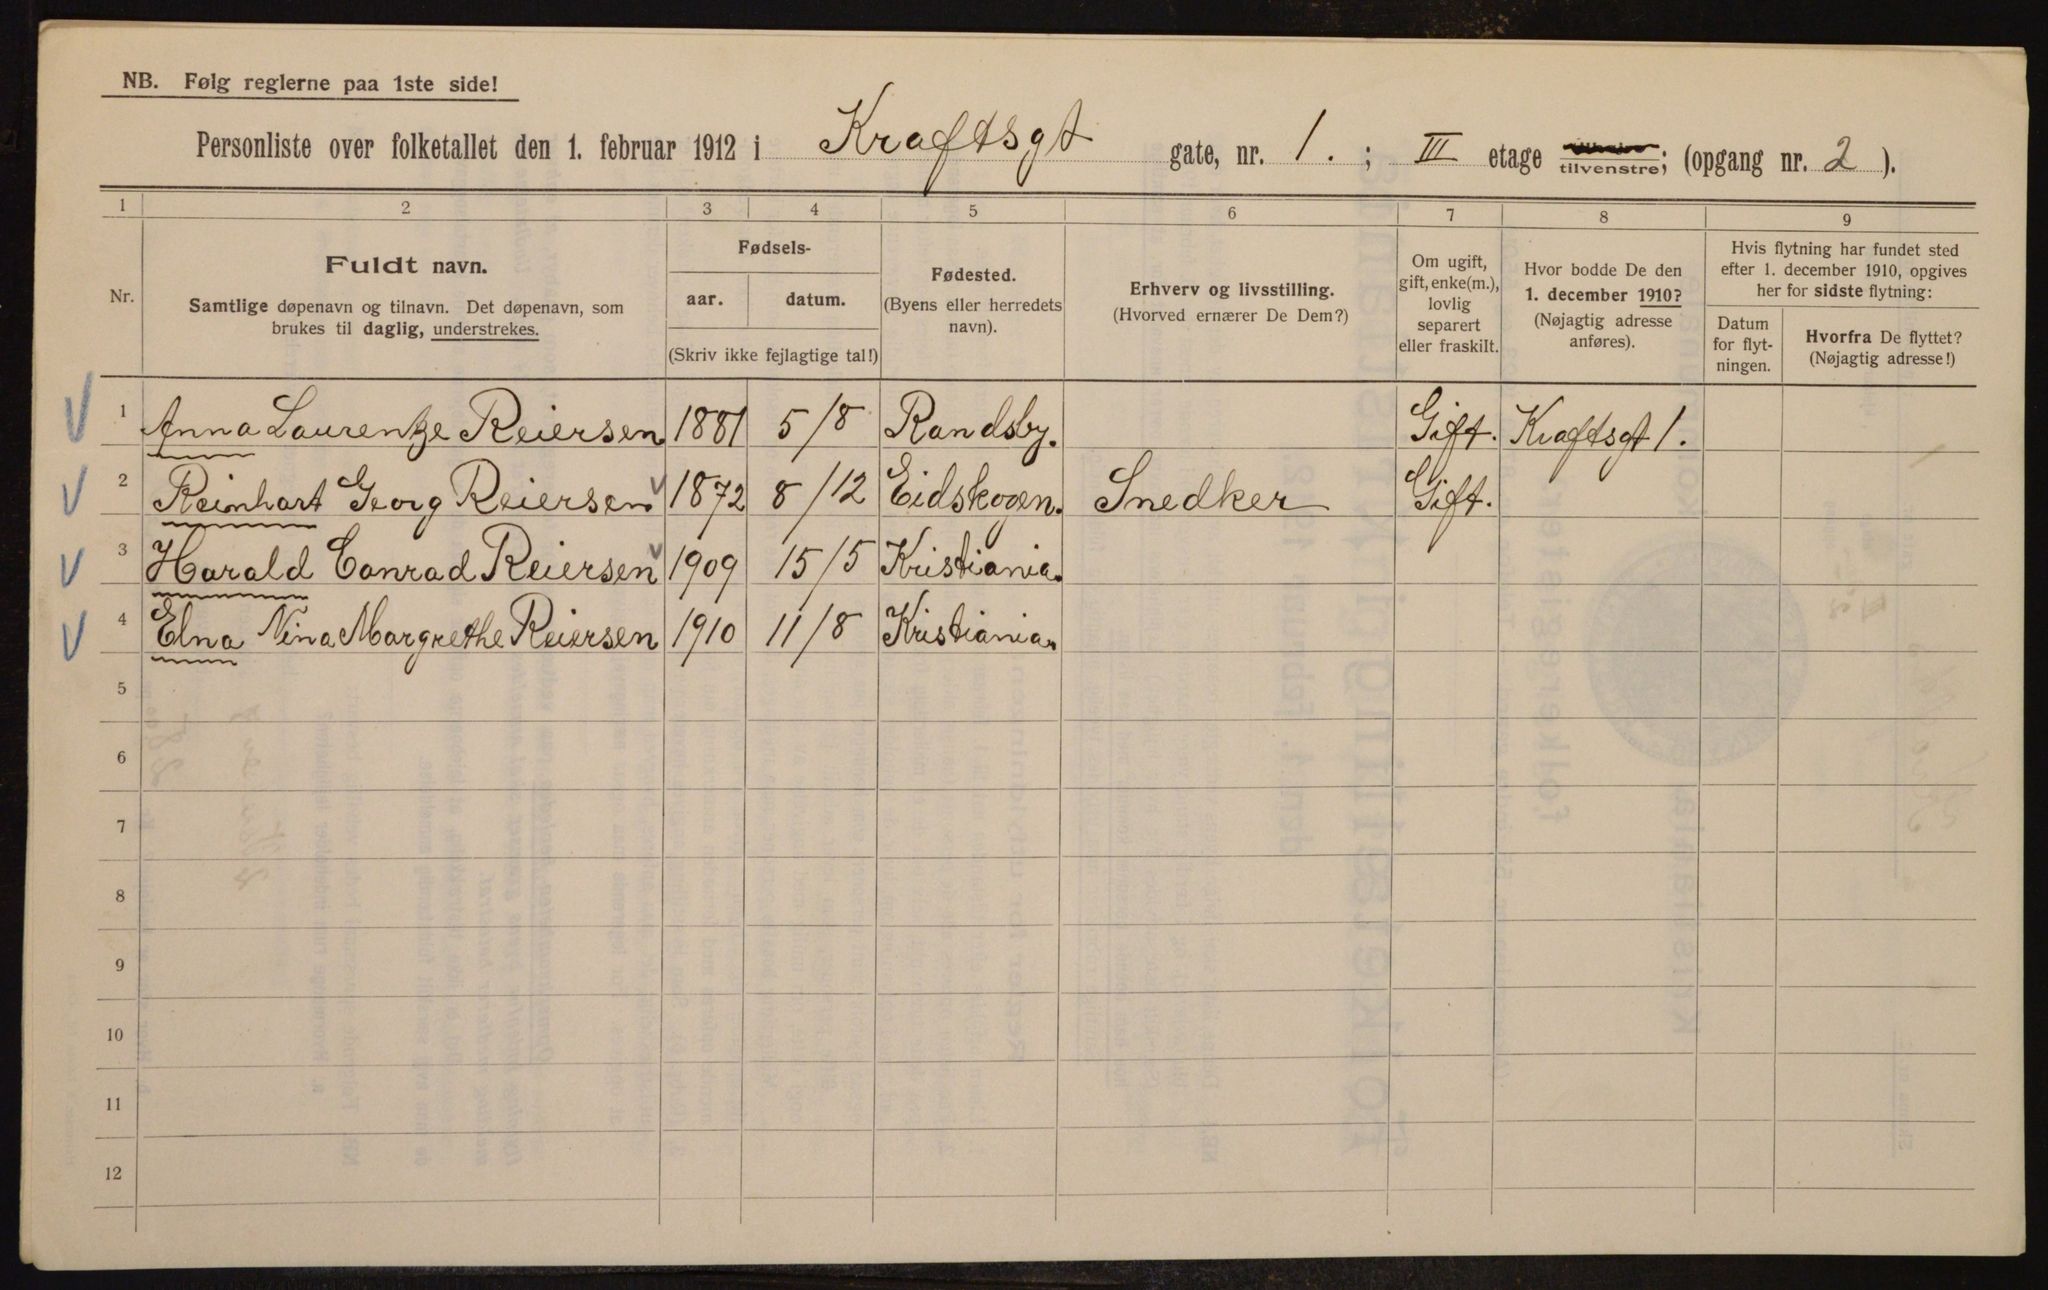 NB. Følg reglerne paa 1ste side!
Personliste over folketallet den 1. februar 1912 i Kraftsgt gate, nr. 1. ; III etage tilvenstre; (opgang nr. 2 ).
1 2 3 4 5 6 7 8 9
Nr.
Fuldt navn.
Samtlige døpenavn og tilnavn. Det døpenavn, som
brukes til daglig, understrekes.
Fødsels-
aar. datum.
(Skriv ikke fejlagtige tal!)
Fødested.
(Byens eller herredets
navn).
Erhverv og livsstilling.
(Hvorved ernærer De Dem?)
Om ugift,
gift, enke(m.),
lovlig
separert
eller fraskilt.
Hvor bodde De den
1. december 1910?
(Nøjagtig adresse
anføres).
Hvis flytning har fundet sted
efter 1. december 1910, opgives
her for sidste flytning:
Datum
for flyt-
ningen.
Hvorfra De flyttet?
(Nøjagtig adresse!)
1 Anna Laurentze Reiersen 1881 5/8 Randsby. Gift. Kraftsgt 1.
2 Reinhart Georg Reiersen 1872 8/12 Eidskogen. Snedker Gift.
3 Harald Conrad Reiersen 1909 15/5 Kristiania.
4 Elna Nina Margrethe Reiersen 1910 11/8 Kristiania.
5
6
7
8
9
10
11
12